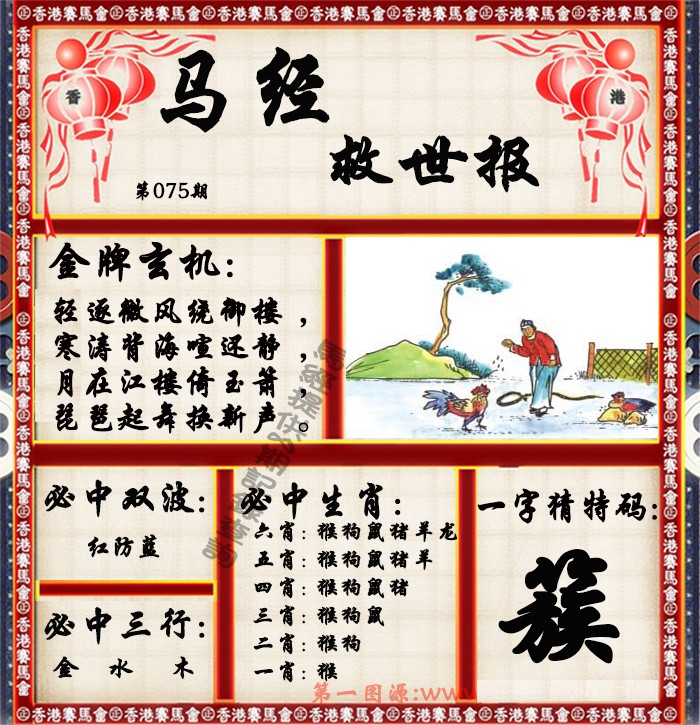 香港賽馬會
香 港
马经
救世报
第075期
金牌玄机：
轻逐微风绕御楼，
寒涛背海喧还静，
月在江楼倚玉箫，
琵琶起舞换新声。
必中双波：
红防蓝
必中三行：
金 水 木
必中生肖：
六肖：猴狗鼠猪羊龙
五肖：猴狗鼠猪羊
四肖：猴狗鼠猪
三肖：猴狗鼠
二肖：猴狗
一肖：猴
一字猜特码：
簇
第一图源：www